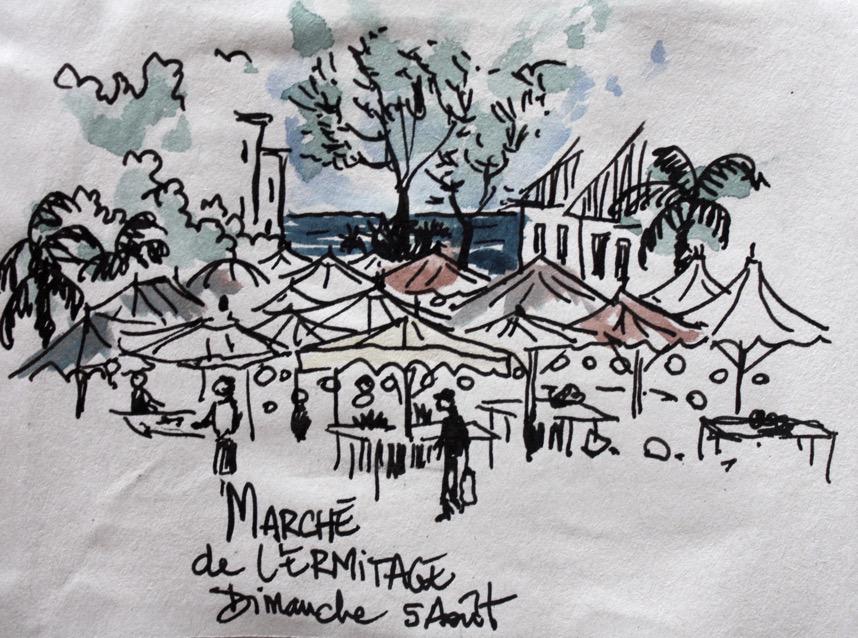 MARCHÉ
de L'ERMITAGE
Dimanche 5 Août